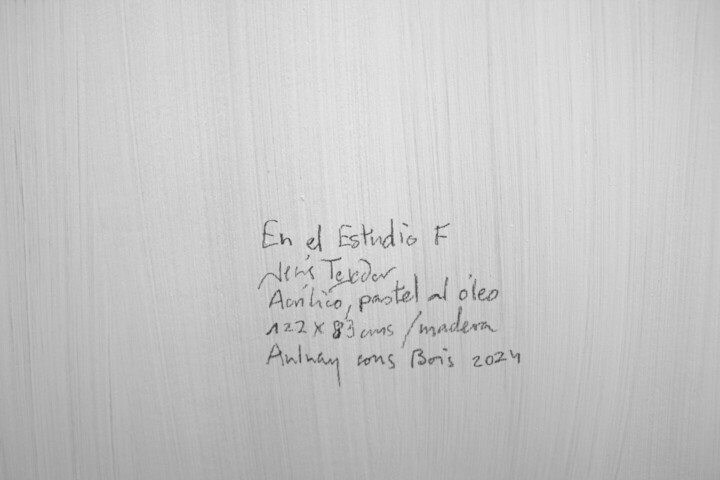 En el Estudio F
Acrílico, pastel al óleo
122 x 83 cms / madera
Aulnay sous Bois 2024